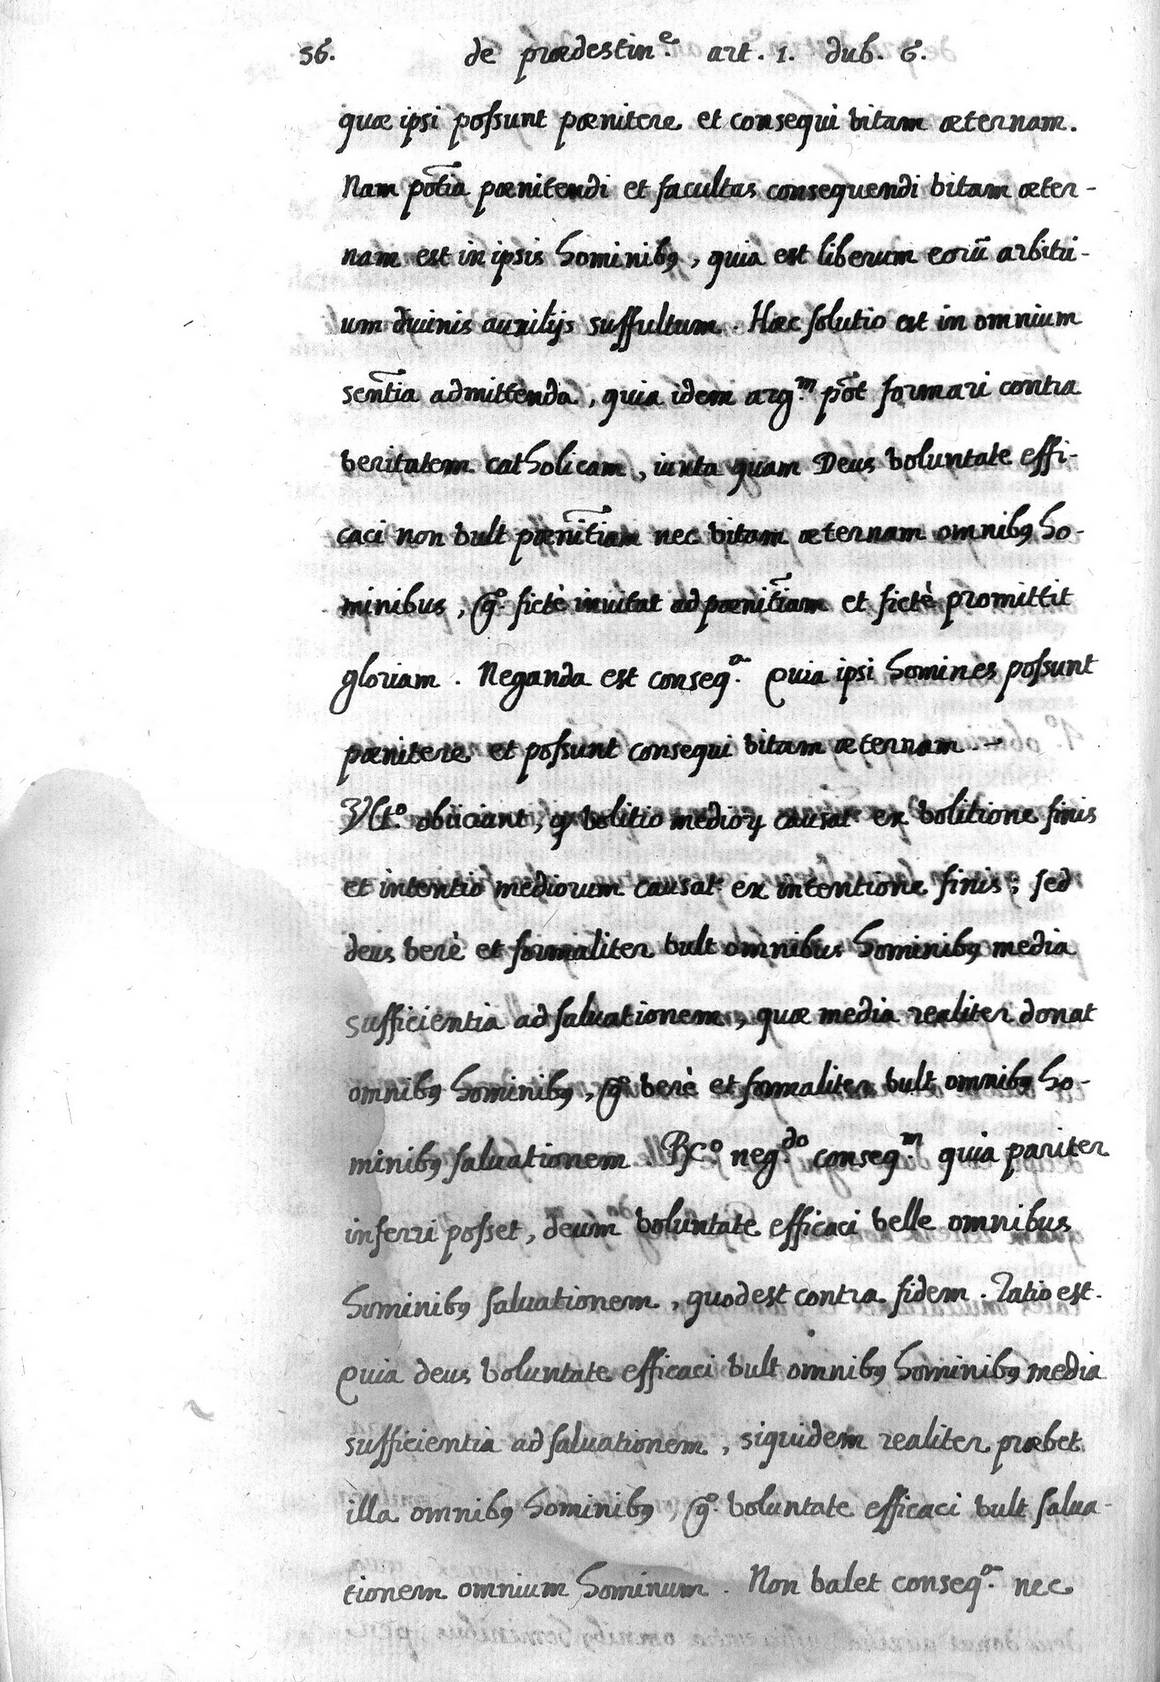 56. de prædestin.e art. 1. dub. 6.
quæ ipsi possunt pœnitere et consequi vitam æternam.
Nam potĩa pœnitendi et facultas consequendi vitam æter-
nam est in ipsis hominibꝰ, quia est liberum eorũ arbitri-
um divinis auxilijs suffultum. Hæc solutio est in omnium
sentĩa admittenda, quia idem arg.m põt formari contra
veritatem catholicam, iuxta quam Deus voluntate effi-
caci non vult pœnitĩam nec vitam æternam omnibꝰ ho-
minibus, g.o fictè invitat ad pœnitĩam et fictè promittit
gloriam. Neganda est conseq.a Quia ipsi homines possunt
pœnitere et possunt consequi vitam æternam. –
Vlt.o obiiciunt, q̃ volitio medioꝝ causat.r ex volitione finis
et intentio mediorum causat.r ex intentione finis; sed
deus verè et formaliter vult omnibus hominibꝰ media
sufficientia ad salvationem, quæ media realiter donat
omnibꝰ hominibꝰ, g.o verè et formaliter vult omnibꝰ ho-
minibꝰ salvationem. Rc.o neg.do conseq.m quia pariter
inferri posset, deum voluntate efficaci velle omnibus
hominibꝰ salvationem, quod est contra fidem. Ratio est.
Quia deus voluntate efficaci vult omnibꝰ hominibꝰ media
sufficientia ad salvationem, siquidem realiter præbet
illa omnibꝰ hominibꝰ, g.o voluntate efficaci vult salva-
tionem omnium hominum. Non valet conseq.a nec